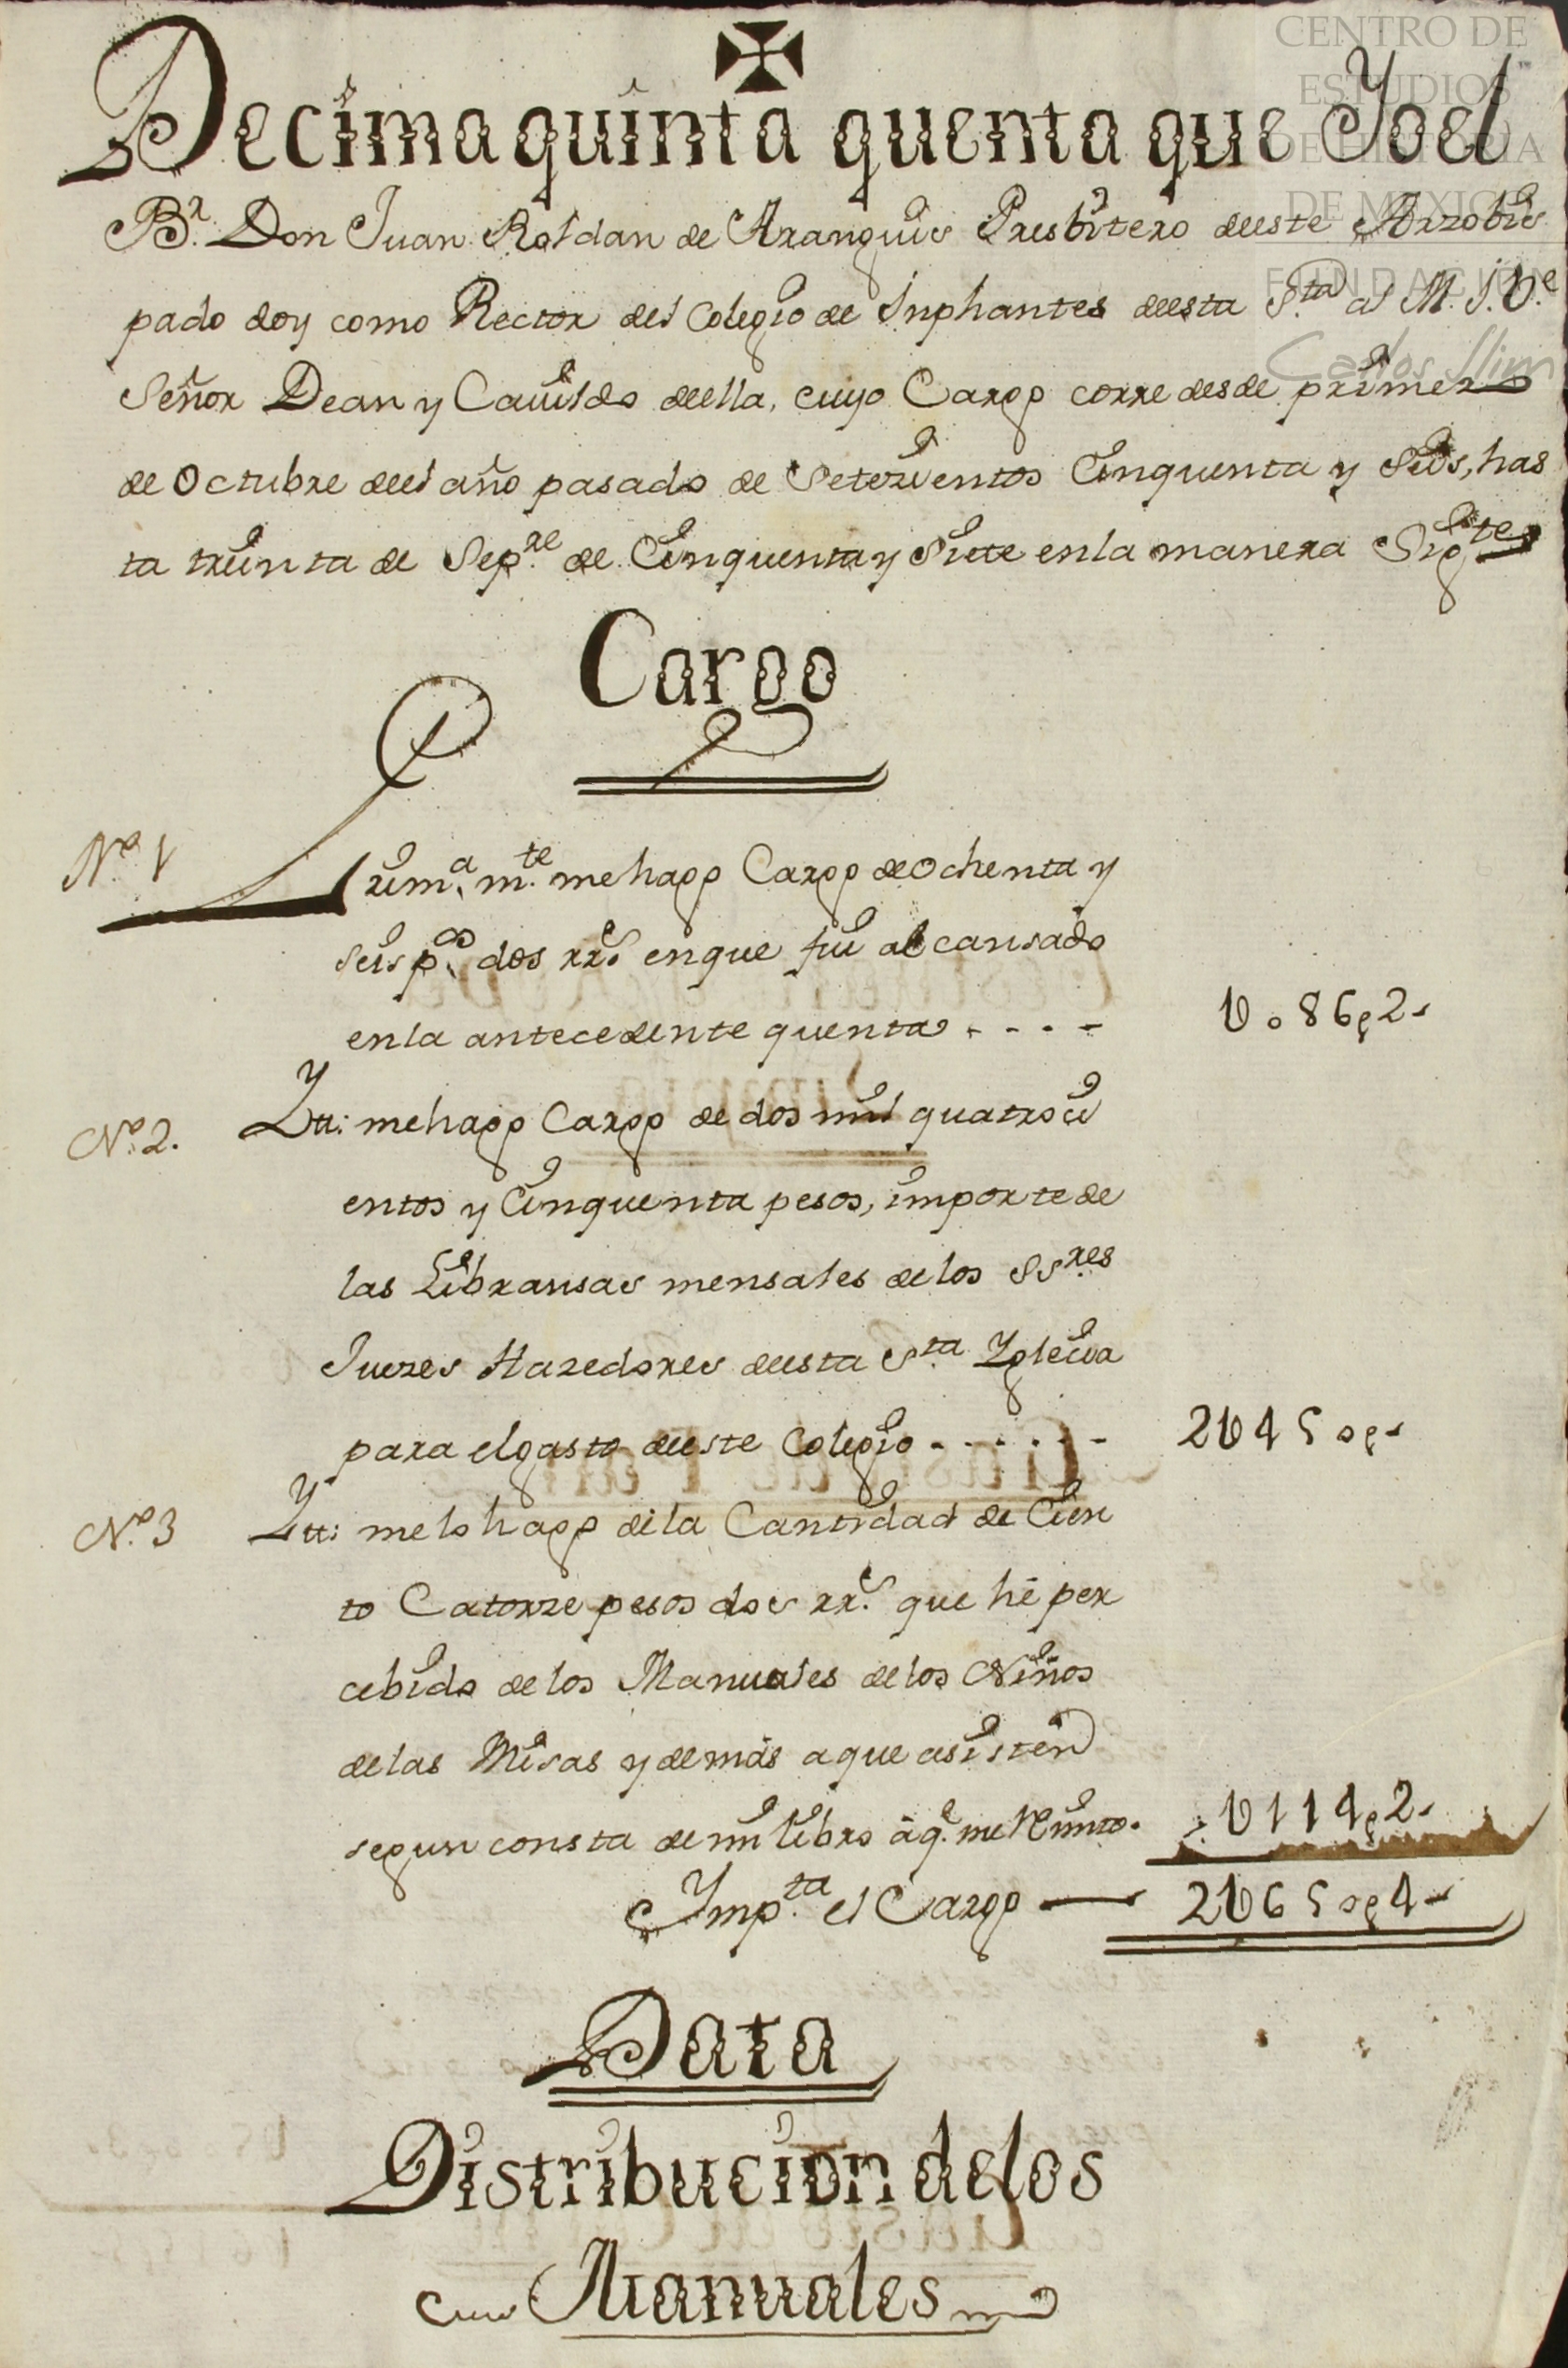 CENTRO DE
ESTUDIOS
DE HISTORIA
DE MEXICO
FUNDACIÓN
Carlos Slim
Decima quinta quenta que Yo el
Br. Don Juan Roldan de Aranguis Presbitero deeste Arzobis
pado doy como Rector del Colegio de Inphantes deesta Sta. al M. I. Ve.
Señor Dean y Cavildo deella, cuyo Cargo corre desde primero
de Octubre deel año pasado de Setezientos Cinquenta y Seis, has
ta treinta de Sepre. de Cinquenta y Siete en la manera Sigte.
Cargo
No. 1 Primamte. me hago Cargo de Ochenta y
seis ps. dos rrs. en que fui alcansado
en la antecedente quenta . - - - U o 8 6 p 2 -
No. 2. Ytt: me hago Cargo de dos mil quatroci
entos y Cinquenta pesos, importe de
las Libransas mensales de los SSres.
Juezes Hazedores deesta Sta. Yglecia
para el gasto deeste Colegio - - - - - 2 U 4 5 o p -
No. 3 Ytt: me lo hago de la Cantidad de Cien
to Catorze pesos dos rrs. que hé per
cebido de los Manuales de los Niños
de las Misas y demás a que asisten
segun consta de mi libro à qe. me Remito. U 1 1 4 p 2 -
Ympta. el Cargo — 2 U 6 5 o p 4 -
Data
Distribucion de los
Manuales